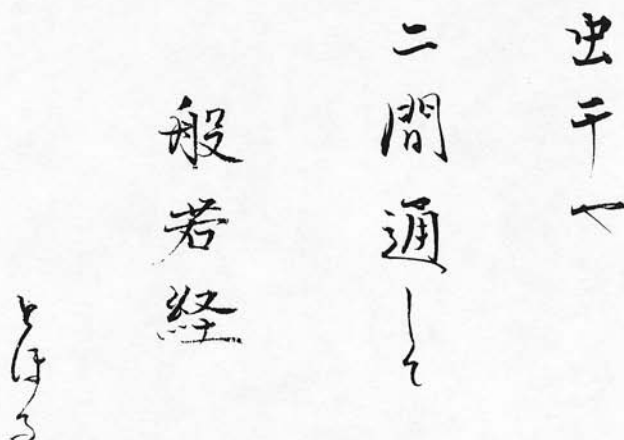 虫干や
二間通して
般若経
とほる